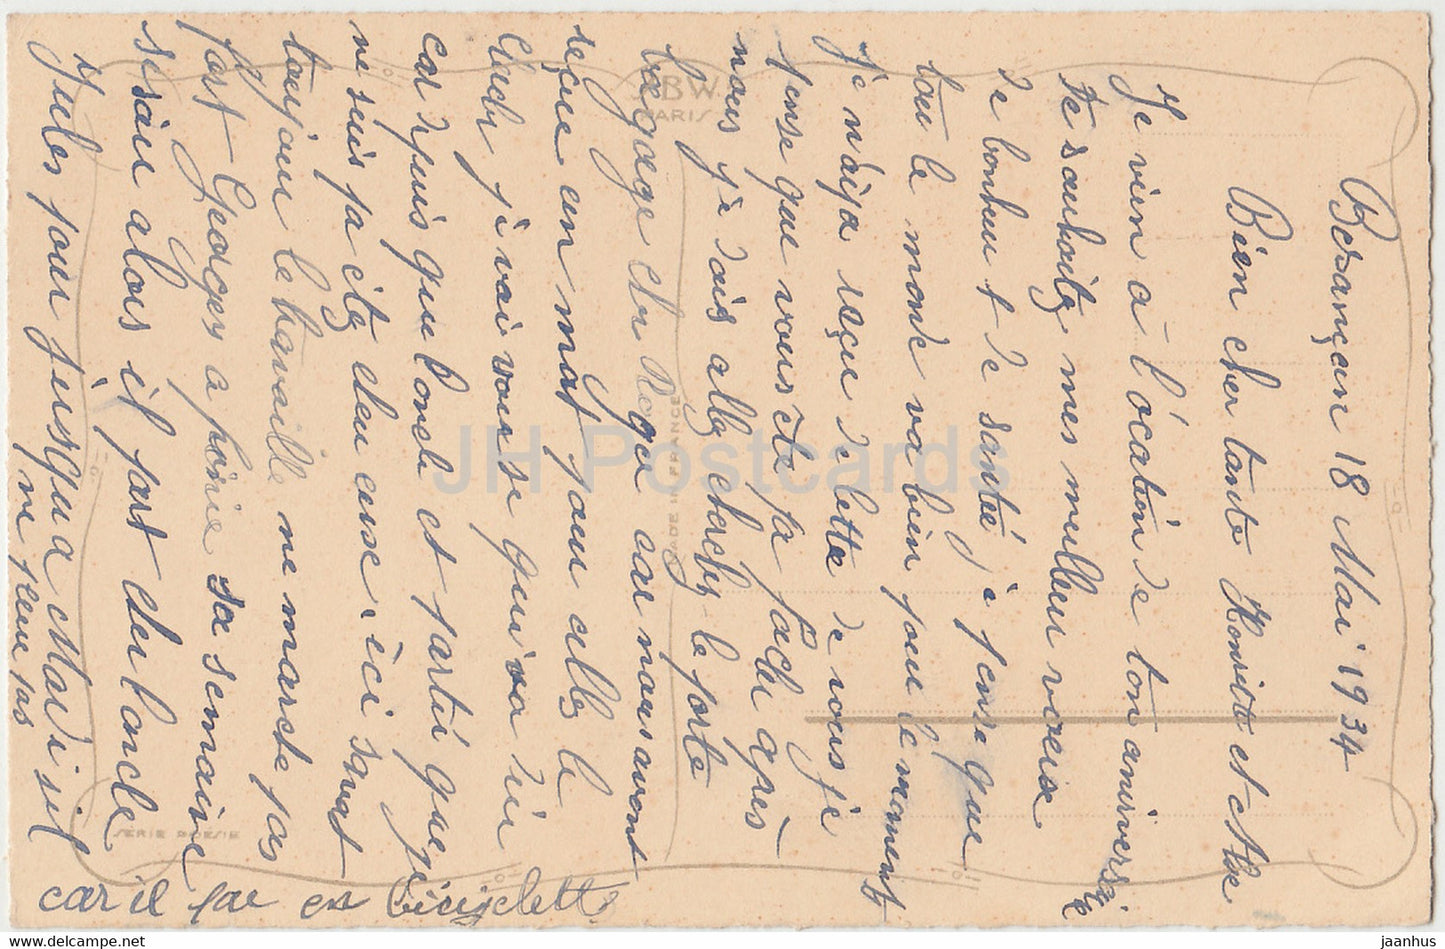 Besançon 18 Mai 1934
Bien cher tante Henriette et
Je vien a l'ocation de ton aniversaire
te sauhaitz mes meilleur vœux
de bonheu t de santé je pense que
tou le monde va bien pour le moment
je n'aipa reçu de lette de vous je
pense que vous ete pa faché apres
nous je dois allz cherchz le porte
bagage chz Roga car nous avont
reçue un mot pour allz le
chechz j'i vai voir se qui va
car depuis que l'oncle et partit que je
ne suis pa etz cheu eusse ici savat
toujour le travaille ne marche pas
fort Georges a fini sa semaine
alors il part cher l'oncle
Jules pour jusqu a Mardi sil
ne pleu pas
car il par en biciclette
J.B.W.
PARIS
MADE IN FRANCE
SERIE POESIE
JH Postcards
www.delcampe.net
jaanhus